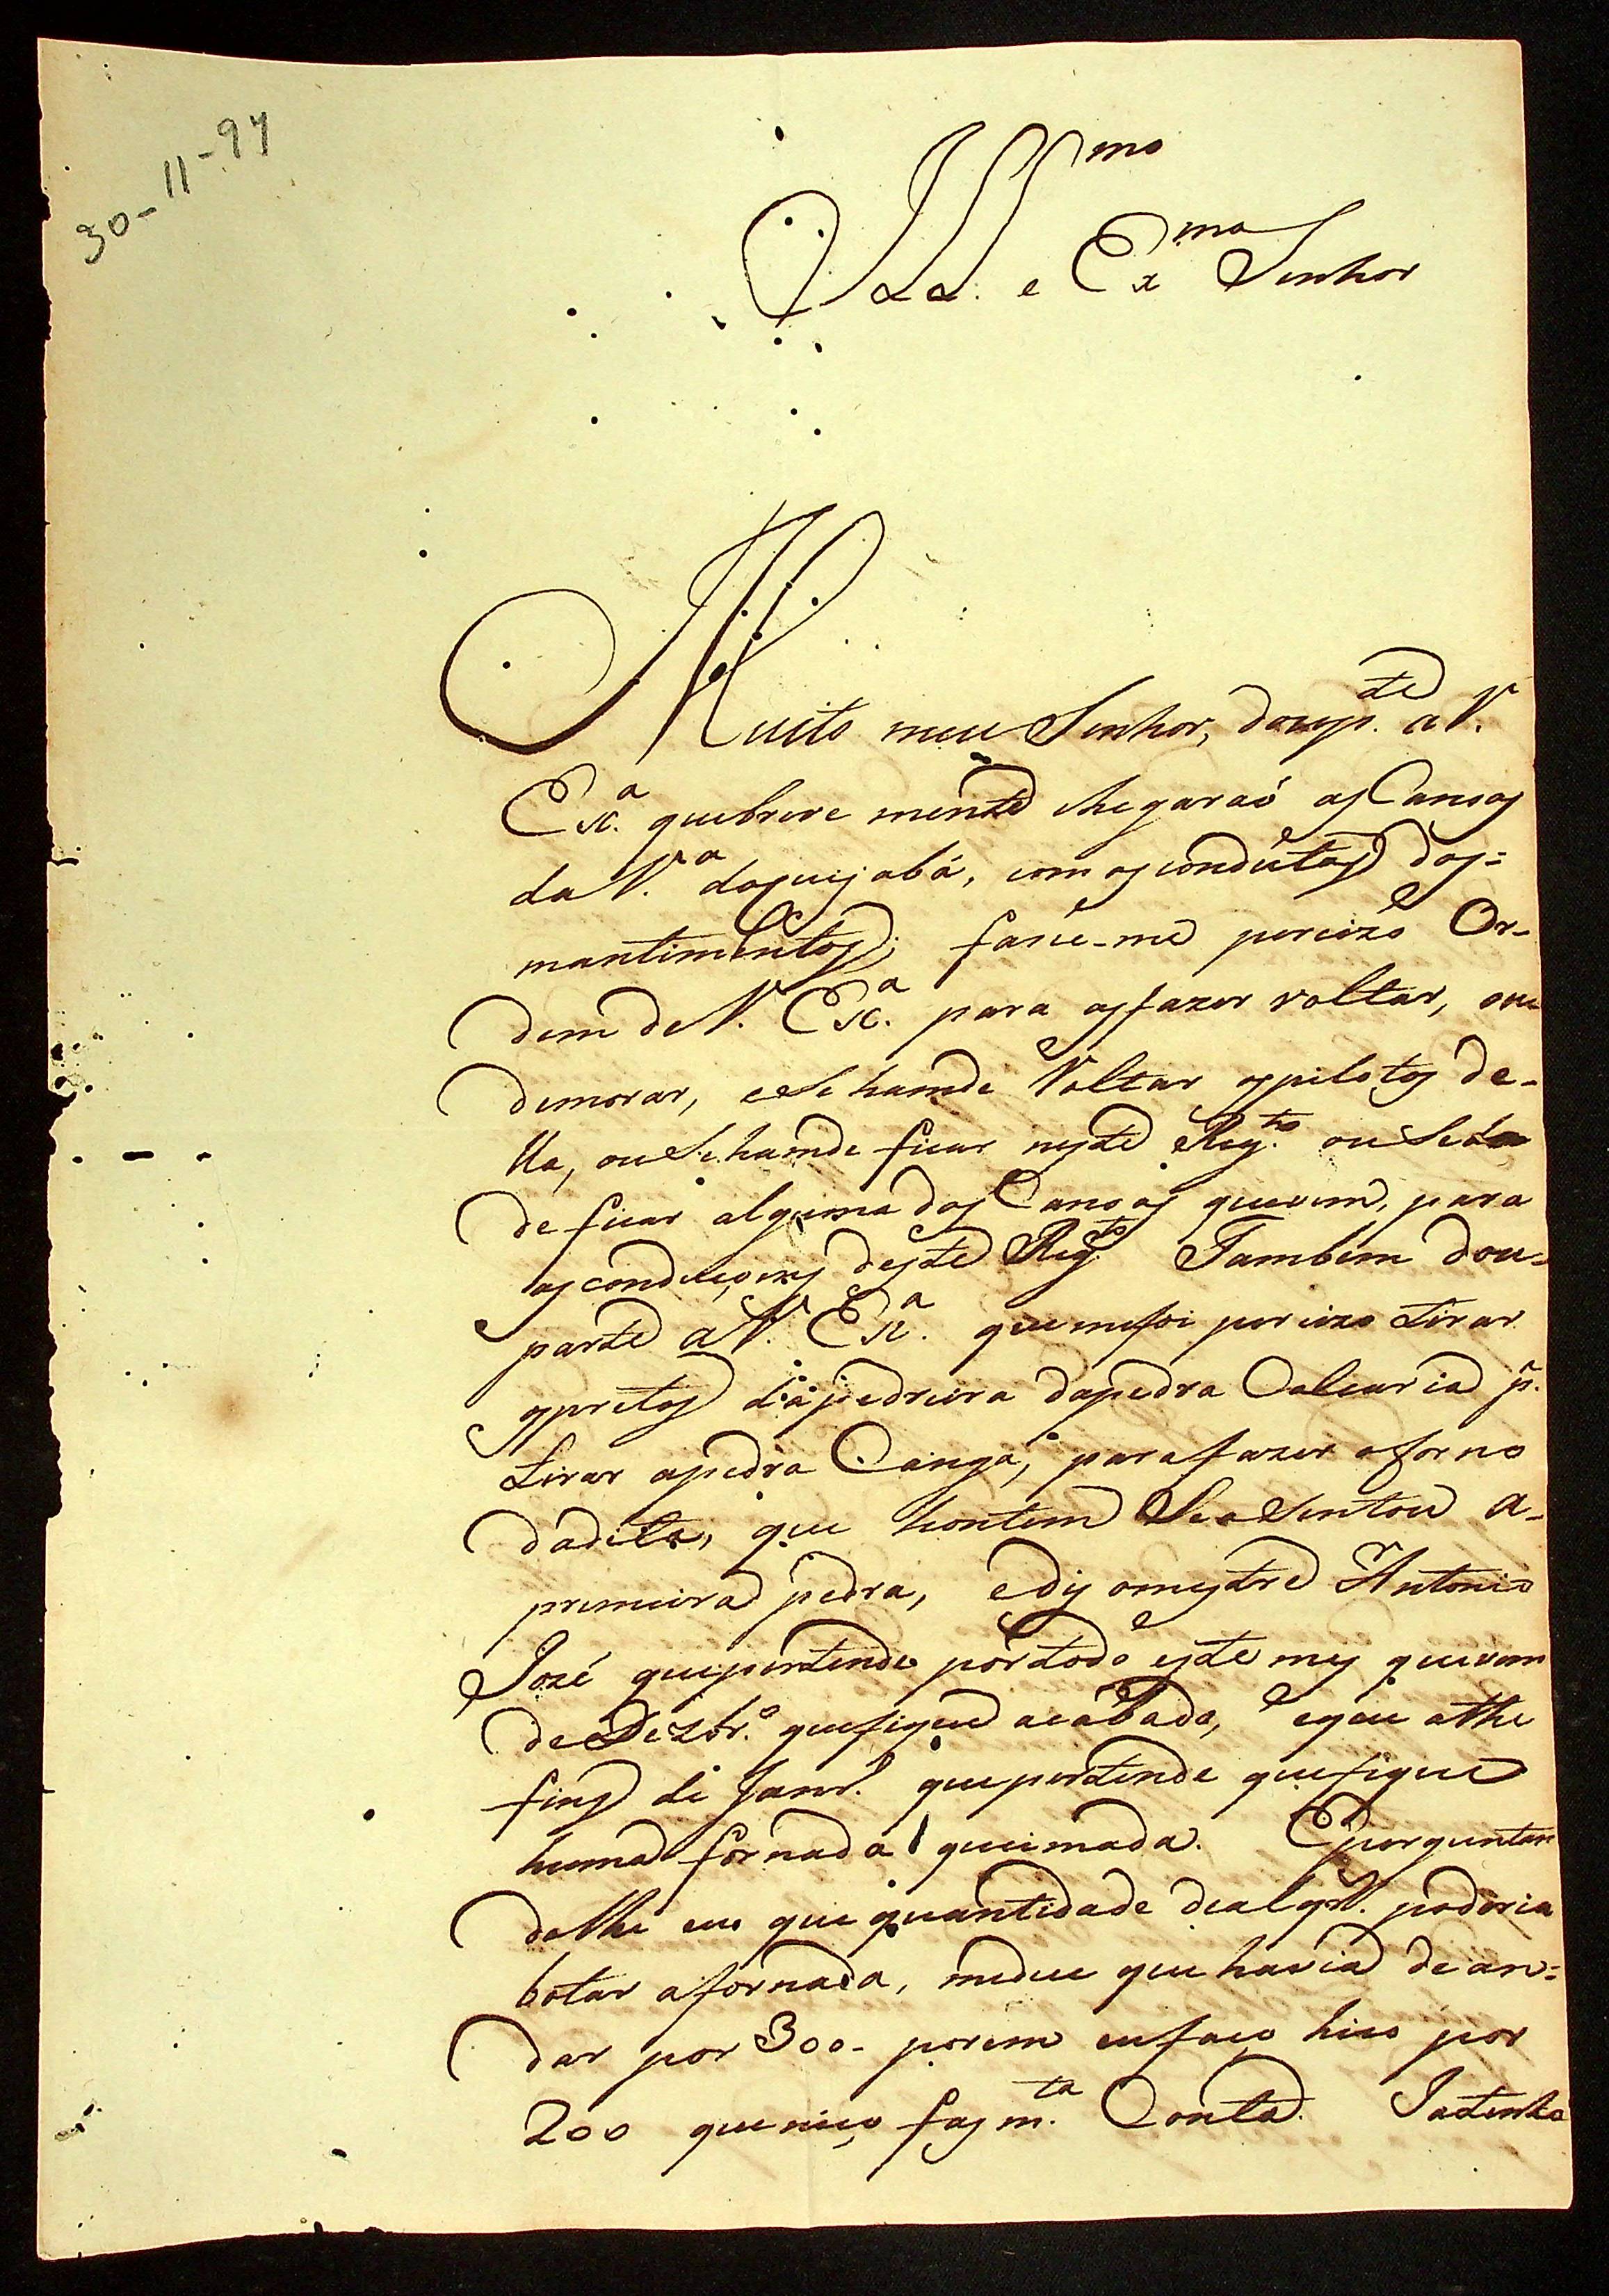 30-11-97
Ill.mo e Ex.mo Senhor
Muito meu Senhor, dou p.te a V.
Ex.a que breve mente chegaraó as Canoas
da V.a do Cujabá, com as condutas dos=
mantimentos; faxe-me percizo Or-
dem de V. Ex.a para as fazer voltar, ou
demorar, e Se hamde Voltar os pilotos de-
lla, ou Se hamde ficar neste Reg.to ou Se á
de ficar alguma das Canoas que vem, para
as conduçoens deste Reg.to Tambem dou-
parte a V. Ex.a que me foi percizo tirar
os pretos da pedreira da pedra Calcaria p.
tirar a pedra Canga, para fazer o forno
da dita, que hontem Se a Sentou a-
primeira pedra, e diz o mestre Antonio
Jozé que pertende por todo este mez que vem
de Dezbr.o que fique acabado, e que athe
fins de Janr.o que pertende que fique
huma fornada queimada. E porguntan
dolhe eu que quantidade de alqr. poderia
botar a fornada, me dice que havia de an=
dar por 300- porem eu faço hiso por
200 que niço fas m.ta Conta. Ja tenho